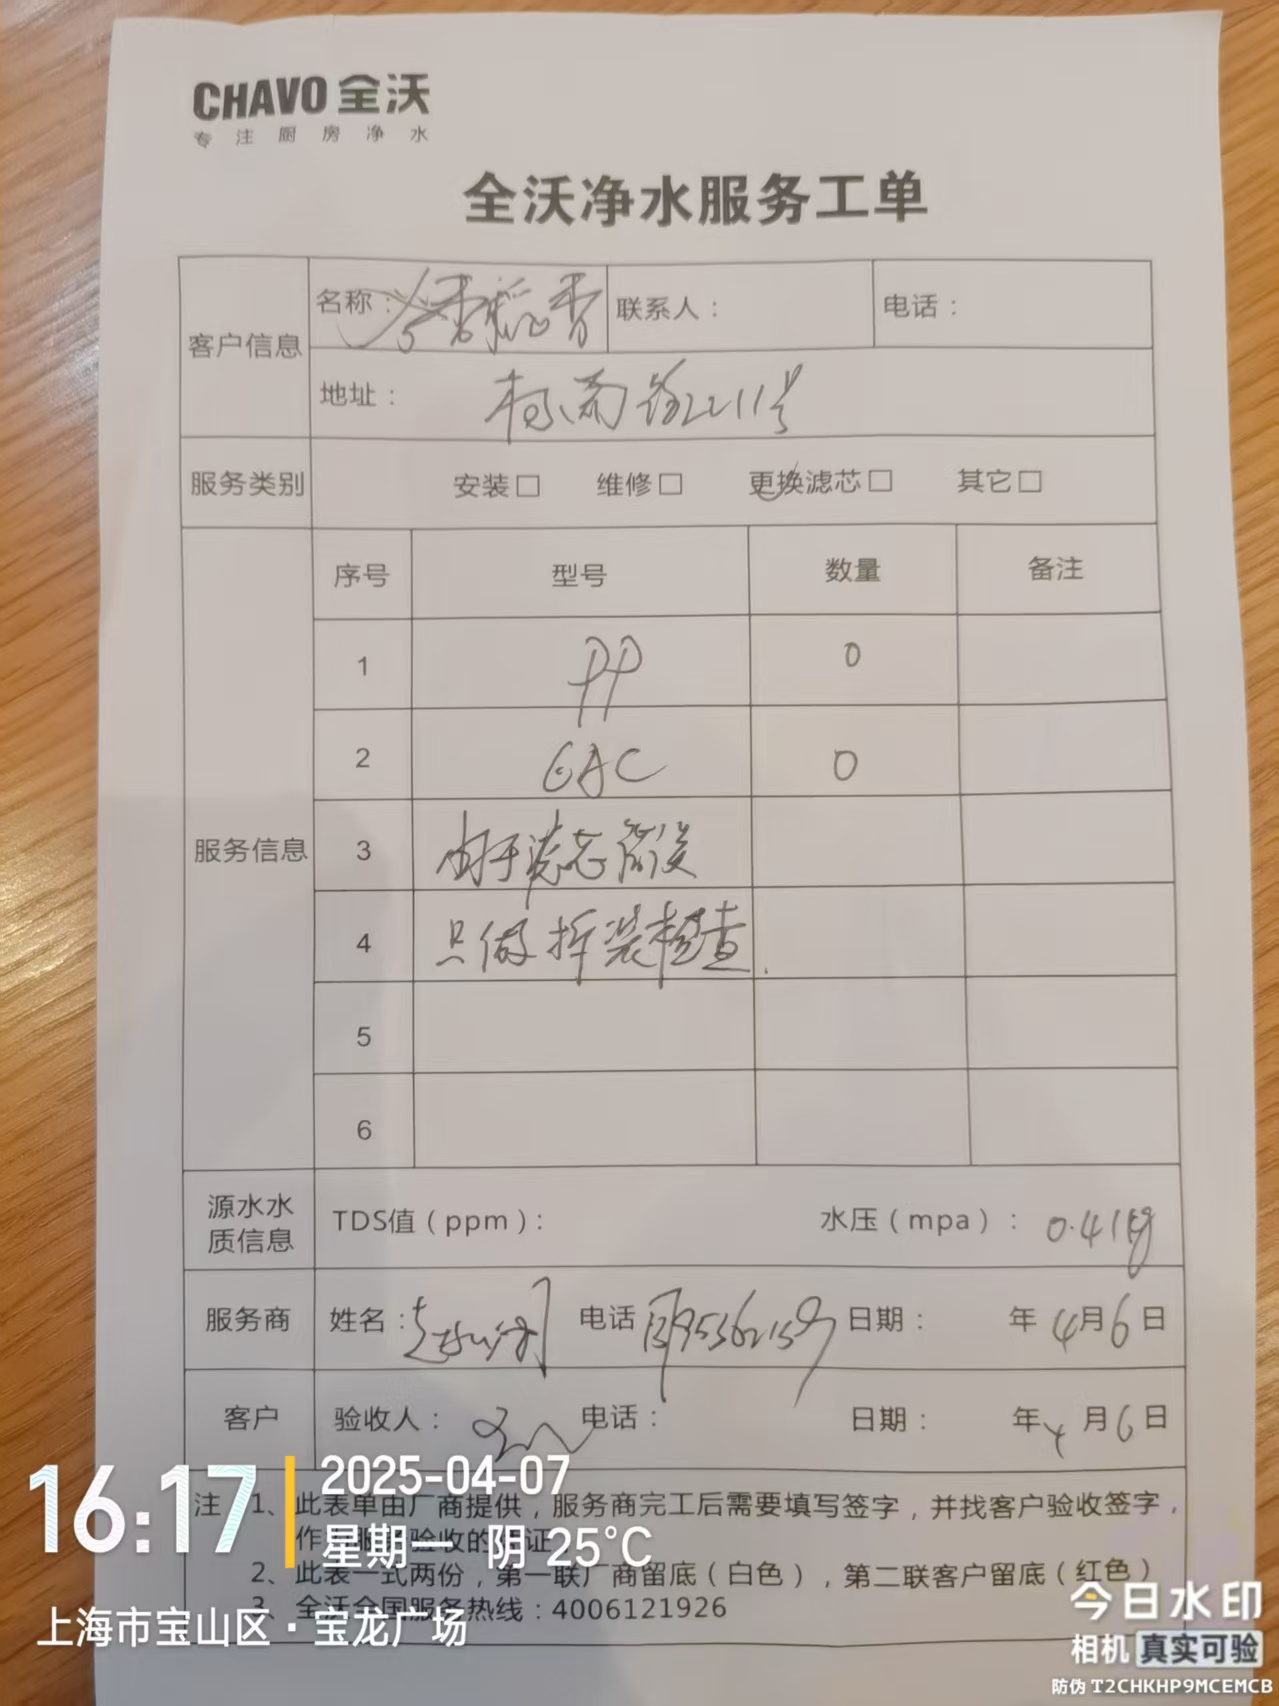 CHAVO 全沃
专注厨房净水
全沃净水服务工单
客户信息 名称: 稻香 联系人: 电话:
地址: 杨南路2211号
服务类别 安装□ 维修□ 更换滤芯□ 其它□
服务信息 序号 型号 数量 备注
1 PP 0
2 GAC 0
3 由于滤芯
4 只做拆装检查.
5
6
源水水质信息 TDS值(ppm): 水压(mpa): 0.41kg
服务商 姓名: 电话 日期: 年4月6日
客户 验收人: 电话: 日期: 年4月6日
注 1、此表单由厂商提供,服务商完工后需要填写签字,并找客户验收签字,
作 服 验收的 证
2、此表一式两份,第一联厂商留底(白色),第二联客户留底(红色)
3、全沃全国服务热线:4006121926
16:17
2025-04-07
星期一 阴 25℃
上海市宝山区·宝龙广场
今日水印
相机 真实可验
防伪 T2CHKHP9MCEMCB